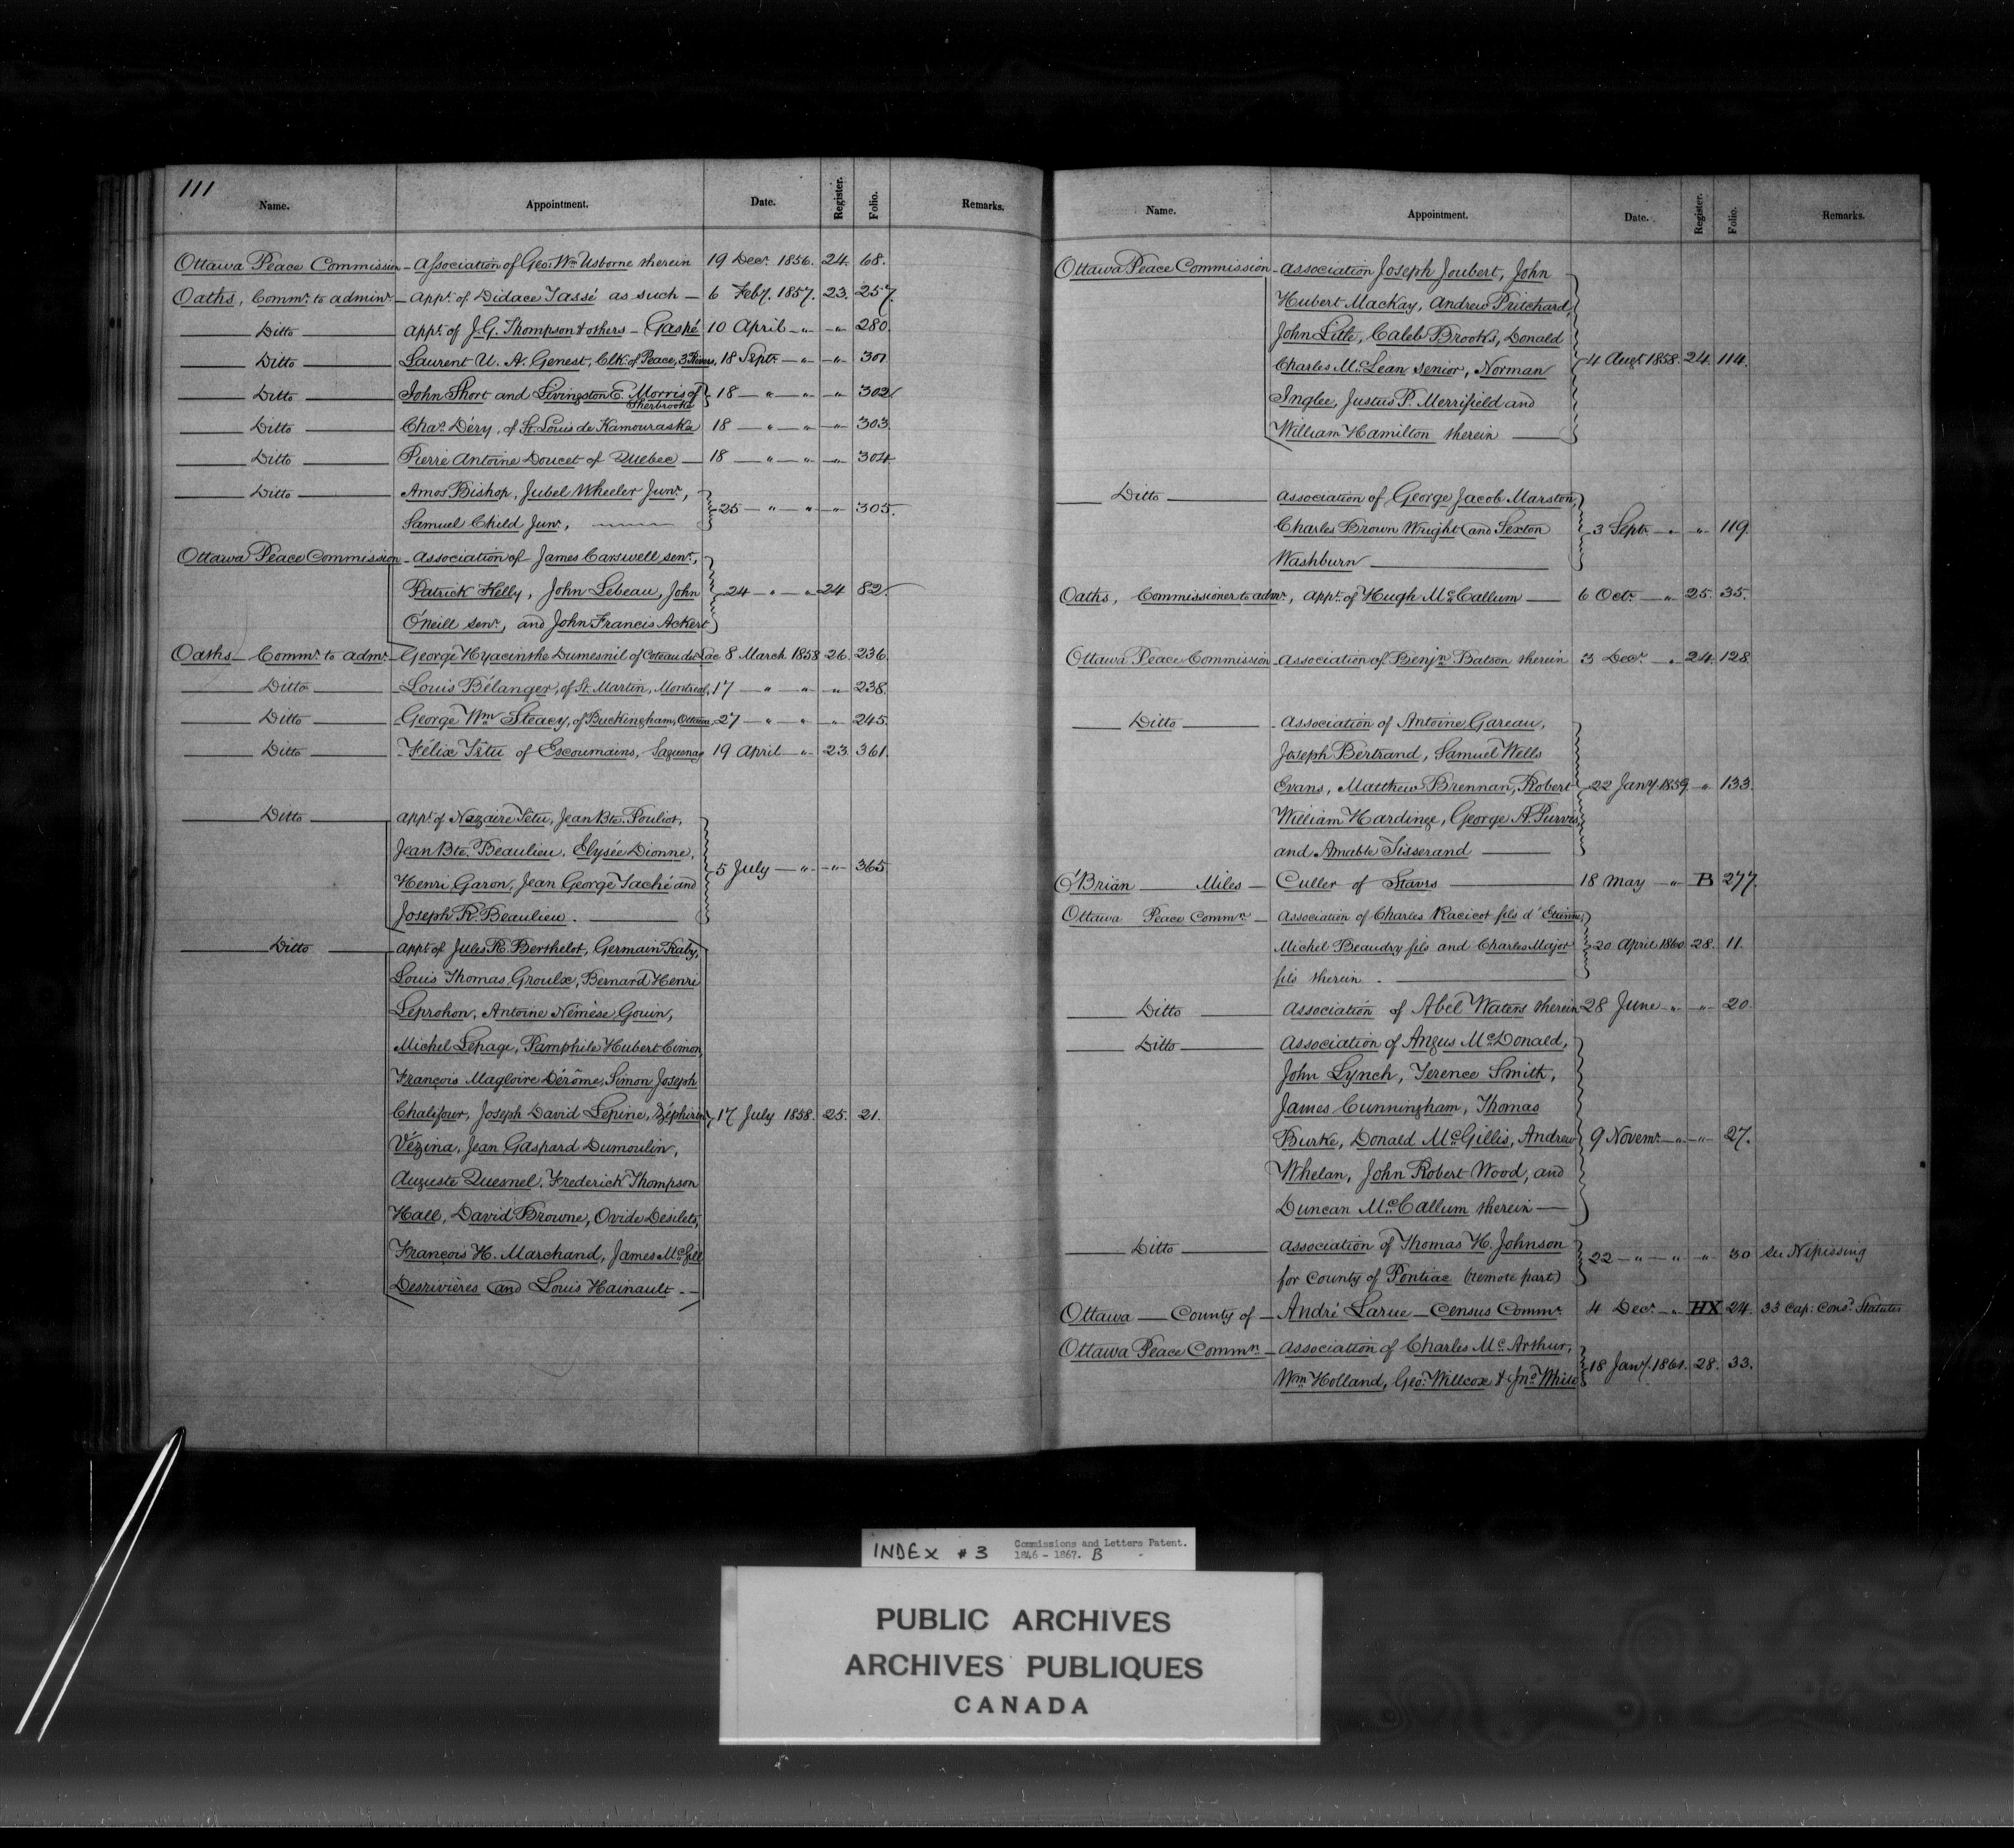 111
Name. Appointment. Date. Register. Folio. Remarks.
Ottawa Peace Commission - Association of Geo: Wm Usborne therein 19 Decr. 1856. 24. 68.
Oaths, Commr. to adminr. - appt. of Didace Tassé as such - 6 Feby. 1857. 23. 257
Ditto appt. of J. G. Thompson & others - Gaspé 10 April - " - " - 280
Ditto Laurent U. A. Genest, Clk. of Peace, 3 Rivers, 18 Septr. - " - " - 301
Ditto John Short and Livingston E. Morris of Sherbrooke 18 - " - " - " - 302
Ditto Chas. Déry, of St. Louis de Kamouraska 18 - " - " - " - 303
Ditto Pierre Antoine Doucet of Quebec - 18 - " - " - " - 304
Ditto Amos Bishop, Jubel Wheeler Junr.,
Samuel Child Junr., 25 - " - " - " - 305.
Ottawa Peace Commission - Association of James Carswell senr.,
Patrick Kelly, John Lebeau, John 24 - " - " - 24 82.
O'Neill senr., and John Francis Ackert
Oaths - Commr. to admr. - George Hyacinthe Dumesnil of Coteau du Lac 8 March 1858 26. 236.
Ditto Louis Bélanger, of St. Martin, Montreal, 17 - " - " - " - 238.
Ditto George Wm Steacy, of Buckingham, Ottawa, 27 - " - " - " - 245.
Ditto - Félix Têtu of Escoumains, Saguenay 19 April - " - 23. 361.
Ditto appt. of Nazaire Têtu, Jean Bte. Pouliot,
Jean Bte. Beaulieu, Elysée Dionne,
Henri Garon, Jean George Taché and 5 July - " - " - 365
Joseph R. Beaulieu.
Ditto appt. of Jules R. Berthelot, Germain Raby,
Louis Thomas Groulx, Bernard Henri
Leprohon, Antoine Némèse Gouin,
Michel Lepage, Pamphile Hubert Cimon,
François Magloire Dérôme, Simon Joseph
Chalifour, Joseph David Lepine, Zéphirin 17 July 1858. 25. 21.
Vézina, Jean Gaspard Dumoulin,
Auguste Quesnel, Frederick Thompson
Hall, David Browne, Ovide Desilets,
François H. Marchand, James McGill
Desrivières and Louis Hainault. -
Name. Appointment. Date. Register. Folio. Remarks.
Ottawa Peace Commission - Association Joseph Joubert, John
Hubert MacKay, Andrew Pritchard,
John Litle, Caleb Brooks, Donald
Charles McLean senior, Norman 4 Augt. 1858. 24. 114.
Inglee, Justus P. Merrifield and
William Hamilton therein
Ditto Association of George Jacob Marston,
Charles Brown Wright (and Sexton 3 Septr. - " - " - 119.
Washburn
Oaths, Commissioner to admr., appt. of Hugh McCallum - 6 Octr. - " - 25. 35.
Ottawa Peace Commission - Association of Benjn. Batson therein 3 Decr. - " - 24. 128.
Ditto - Association of Antoine Gareau,
Joseph Bertrand, Samuel Wells
Evans, Matthew Brennan, Robert 22 Jany. 1859. " - 133.
William Hardinge, George A. Purvis,
and Amable Tisserand
O'Brian Miles - Culler of Staves 18 May - " - B 277.
Ottawa Peace Commn - Association of Charles Racicot fils d'Etienne,
Michel Beaudry fils and Charles Major 20 April 1860 28. 11.
fils therein.
Ditto Association of Abel Waters therein 28 June - " - " - 20.
Ditto Association of Angus McDonald,
John Lynch, Terence Smith,
James Cunningham, Thomas
Burke, Donald McGillis, Andrew 9 Novemr. - " - " - 27.
Whelan, John Robert Wood, and
Duncan McCallum therein
Ditto Association of Thomas H. Johnson
for County of Pontiac (remote part) 22 - " - " - " - 30 see Nipissing
Ottawa - County of - André Larue - Census Commr. 4 Decr. - " - HX 24. 33 Cap: Cons. Statutes
Ottawa Peace Commn. - Association of Charles McArthur,
Wm Holland, Geo. Willcox & Jno White 18 Jany. 1861. 28. 33.
INDEX #3 Commissions and Letters Patent.
1846 - 1867. B
PUBLIC ARCHIVES
ARCHIVES PUBLIQUES
CANADA